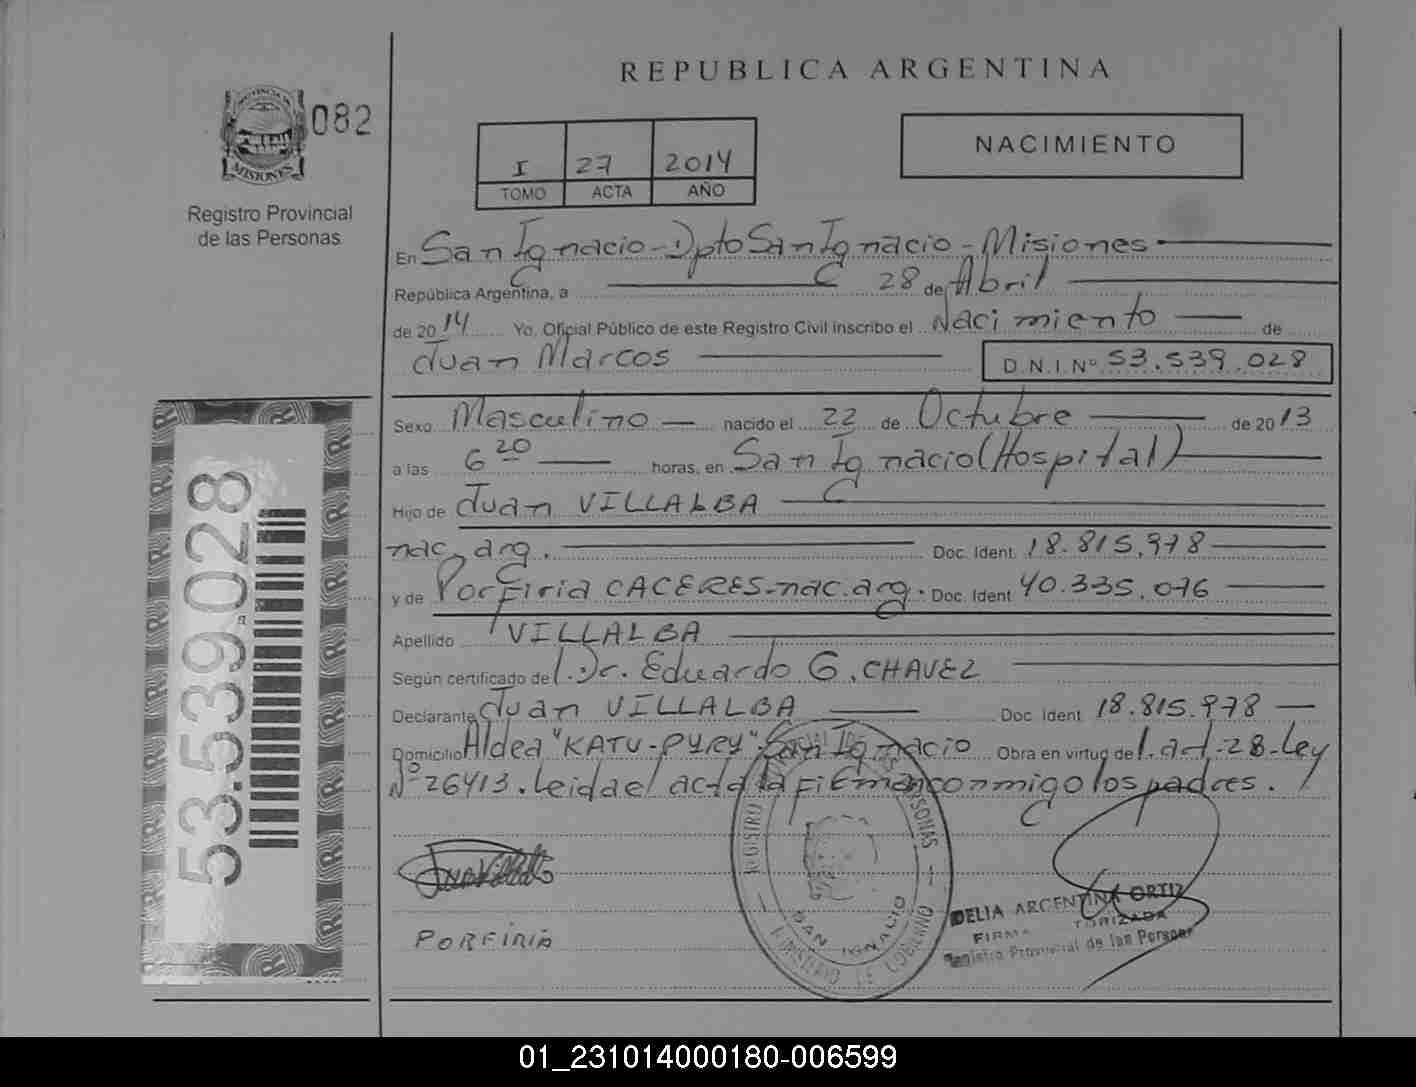 REPUBLICA ARGENTINA
PROVINCIA DE
MISIONES
082
Registro Provincial
de las Personas
I 27 2014
TOMO ACTA AÑO
NACIMIENTO
En San Ignacio - Dpto San Ignacio - Misiones
República Argentina, a 28 de Abril
de 2014 Yo, Oficial Público de este Registro Civil inscribo el Nacimiento de
Juan Marcos D.N.I. Nº 53.539.028
Sexo Masculino nacido el 22 de Octubre de 2013
a las 6 20 horas, en San Ignacio (Hospital)
Hijo de Juan VILLALBA
nac. arg. Doc. Ident. 18.815.978
y de Porfiria CACERES - nac. arg. Doc. Ident 40.335.076
Apellido VILLALBA
Según certificado de Dr. Eduardo G. CHAVEZ
Declarante Juan VILLALBA Doc. Ident 18.815.978
Domicilio Aldea "KATU-PYRY" San Ignacio Obra en virtud de l. art. 28 - Ley
Nº 26413. Leida el acta la firman conmigo los padres.
53.539.028
PORFIRIA
REGISTRO PROVINCIAL DE LAS PERSONAS
SAN IGNACIO
MINISTERIO DE GOBIERNO
DELIA ARGENTINA ORTIZ
Registro Provincial de las Personas
01_231014000180-006599